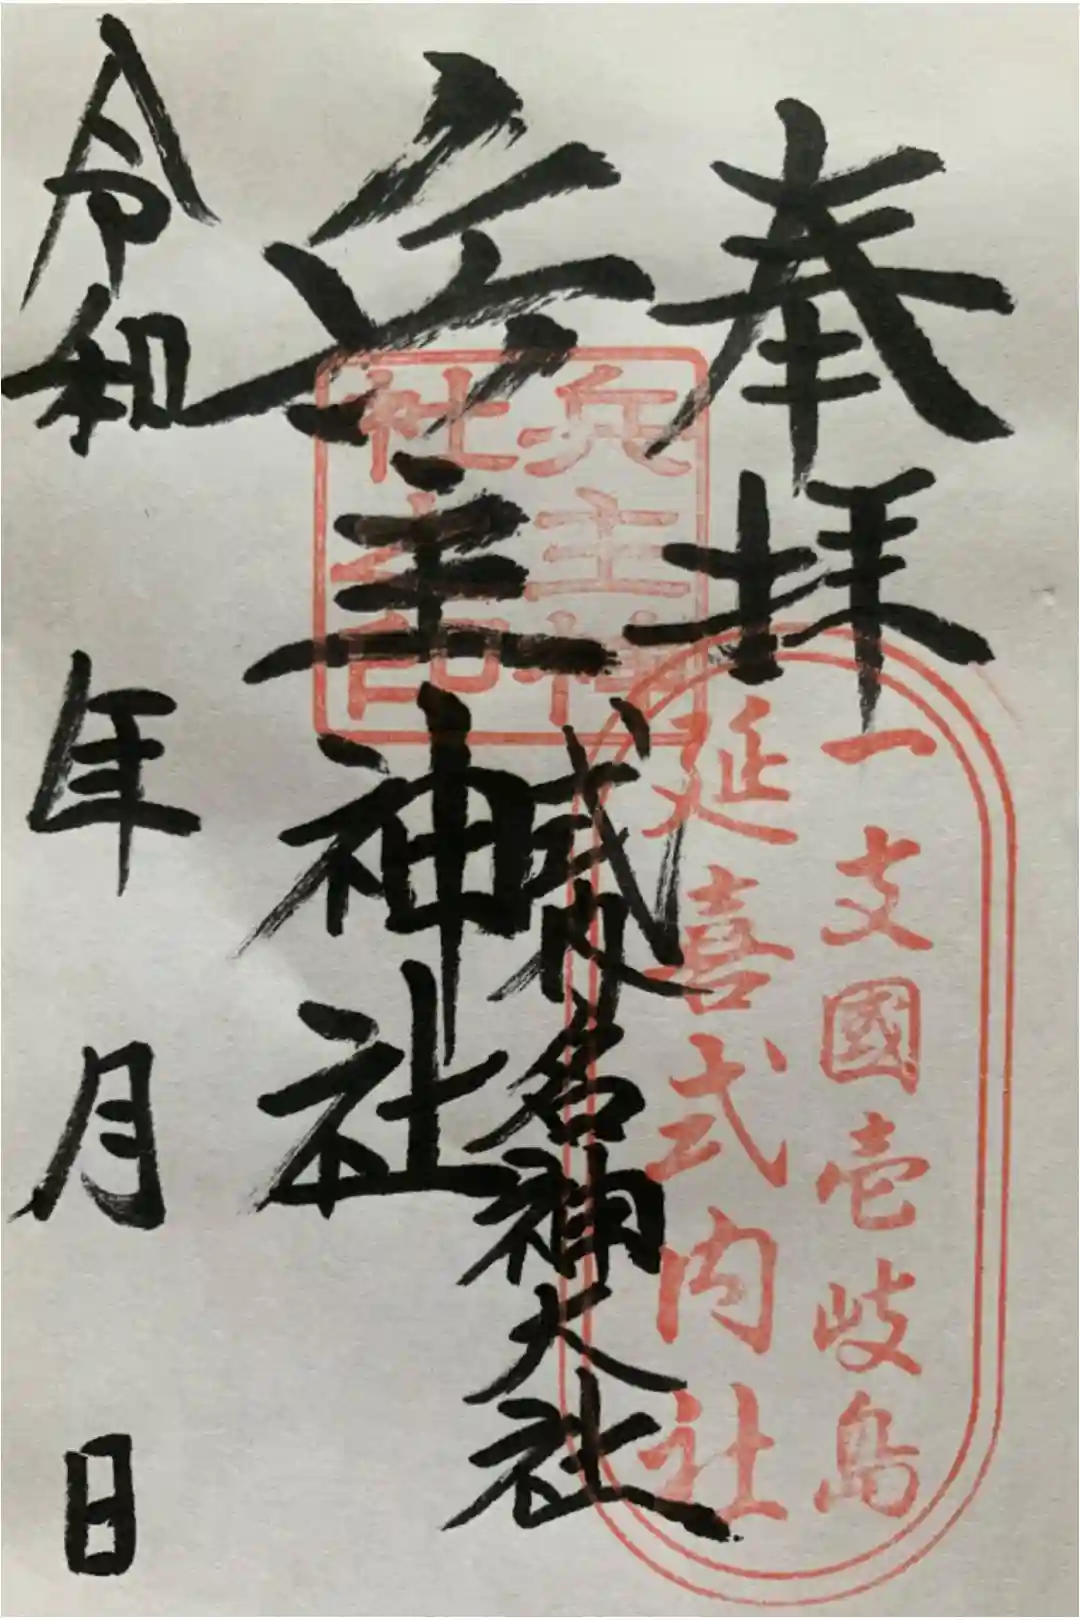 奉拝
一支國壱岐島
延喜式内社
式内名神大社
兵主神社
兵主神
社之印
令和 年 月 日